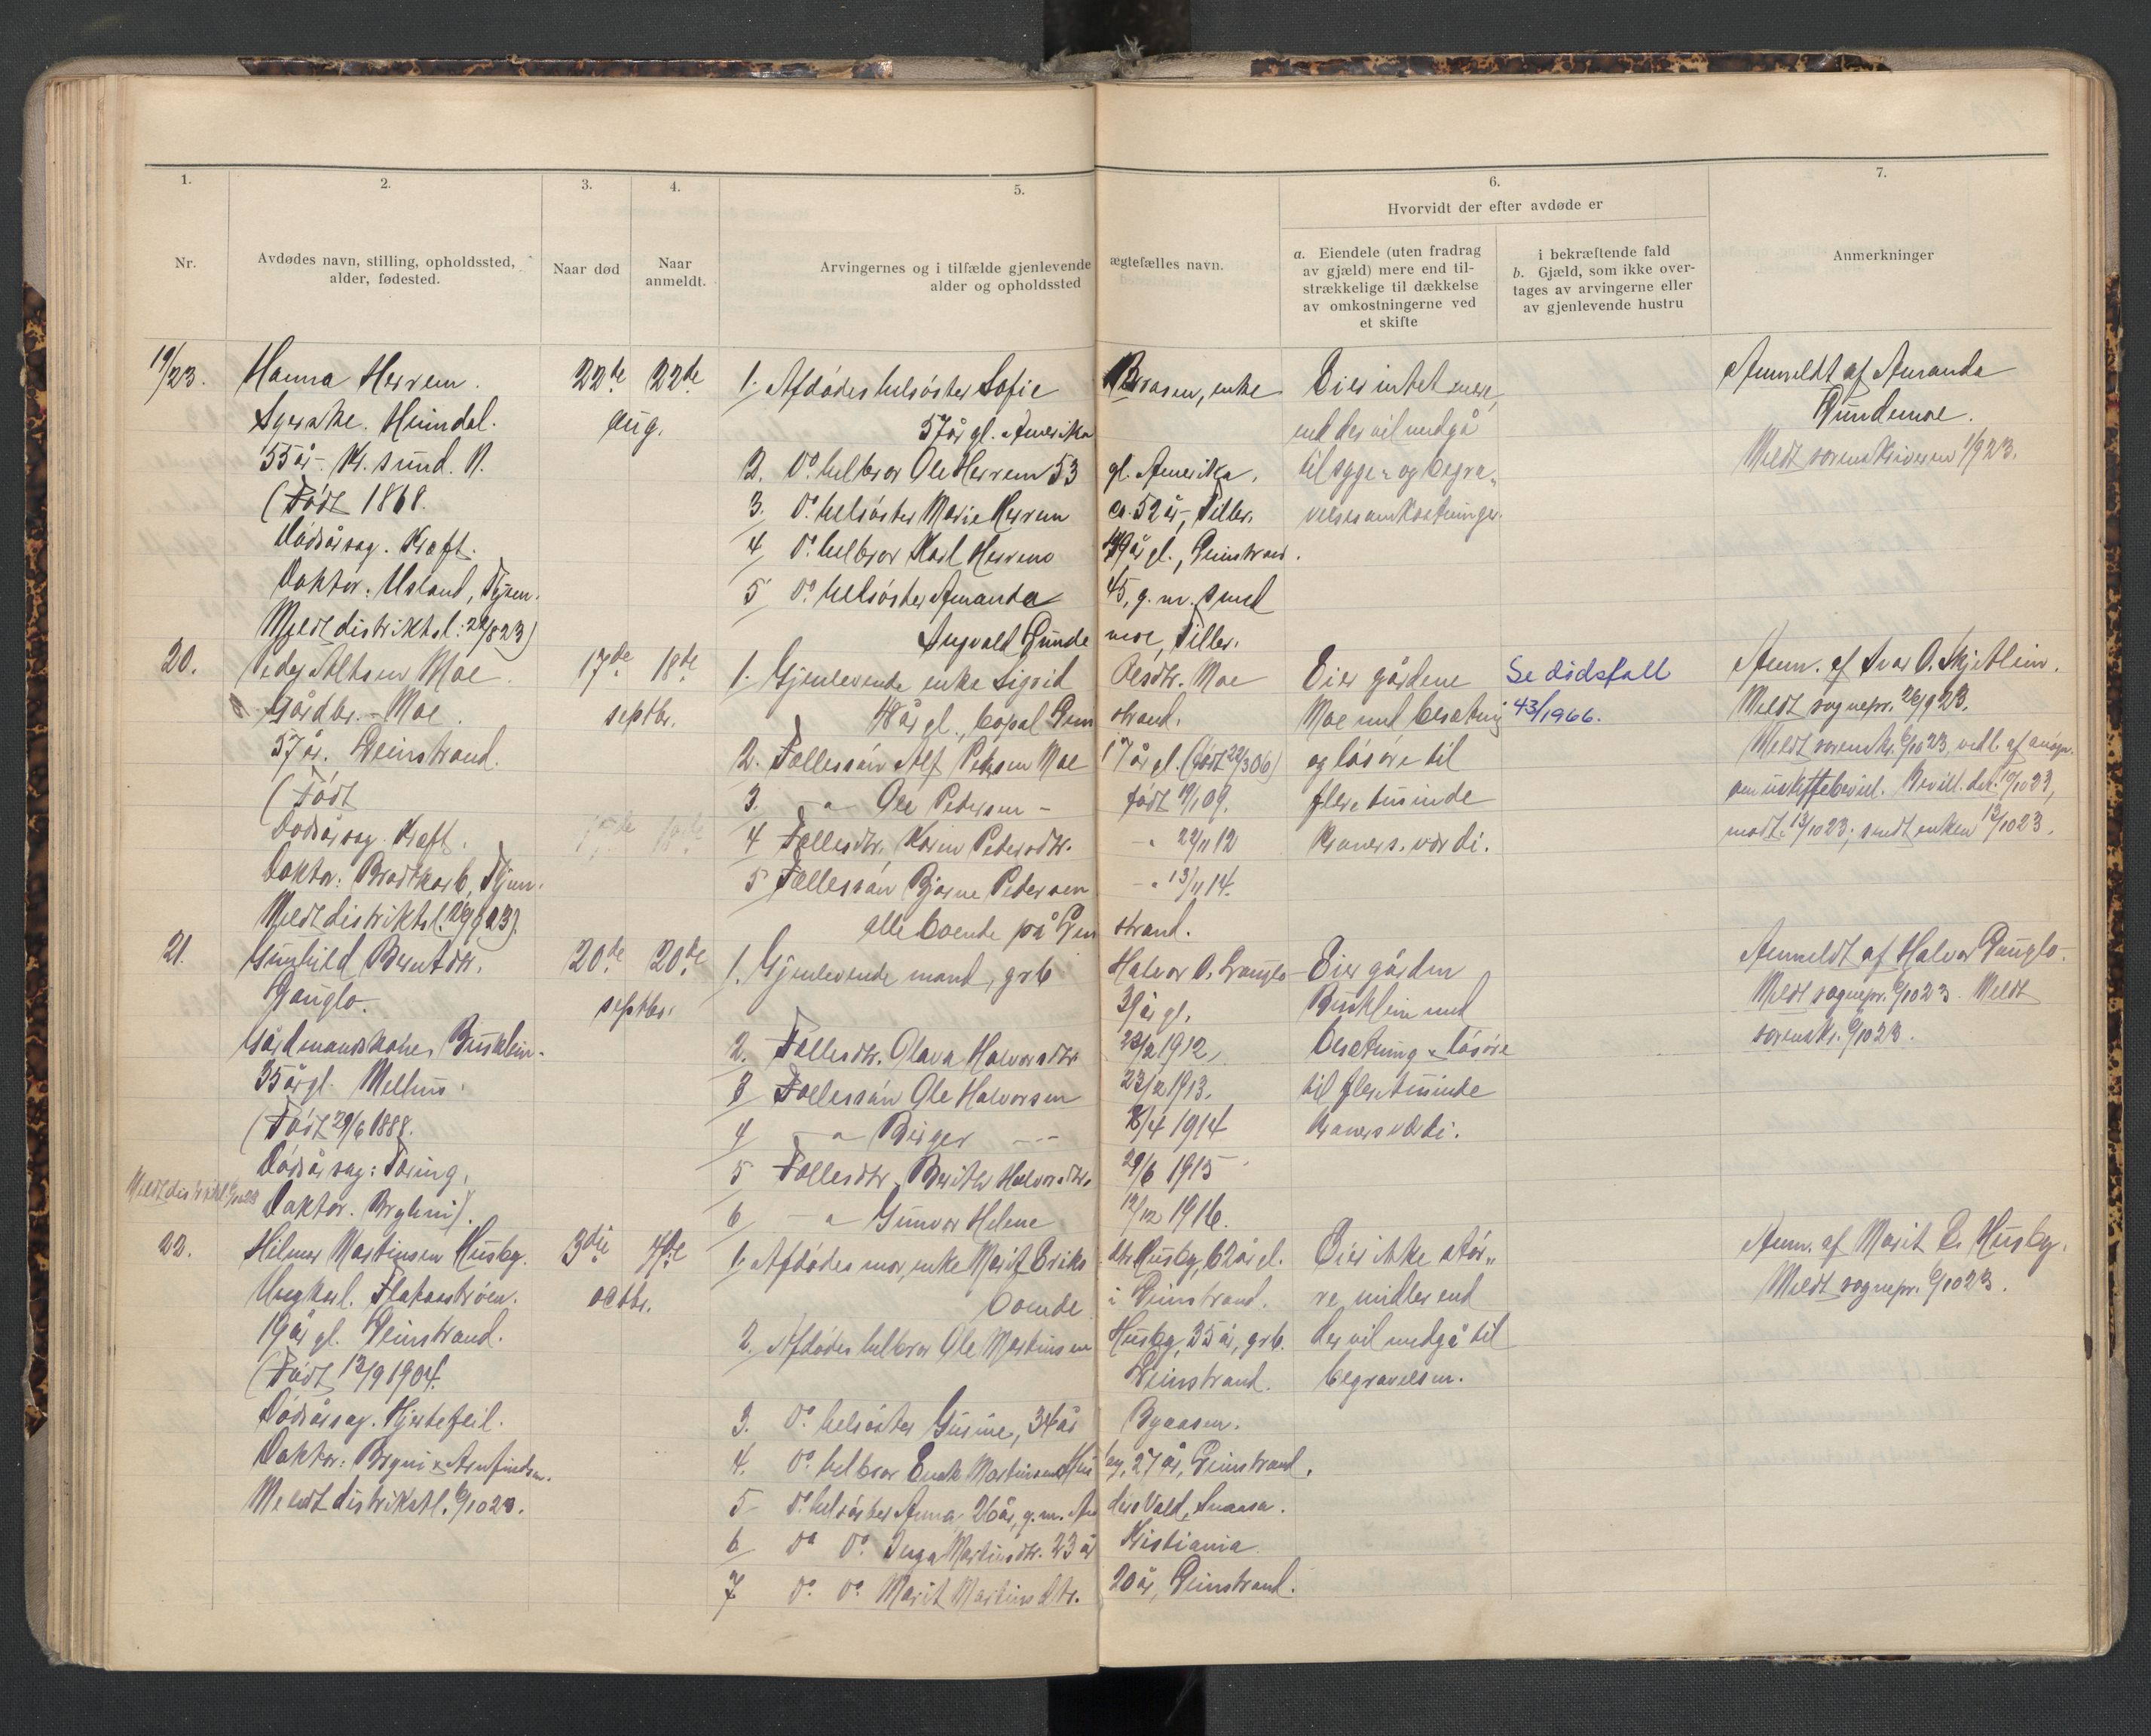 1.
2.
3.
4.
5.
6.
7.
Hvorvidt der efter avdøde er
Nr.
Avdødes navn, stilling, opholdssted,
alder, fødested.
Naar død
Naar
anmeldt.
Arvingernes og i tilfælde gjenlevende ægtefælles navn.
alder og opholdssted
a. Eiendele (uten fradrag
av gjæld) mere end til-
strækkelige til dækkelse
av omkostningerne ved
et skifte
i bekræftende fald
b. Gjæld, som ikke over-
tages av arvingerne eller
av gjenlevende hustru
Anmerkninger
19/23.
Hanna Herrem.
Heimdal.
55 år. Kr. sund. N.
(Født 1868.
Dødsårsag. Kræft.
Doktor. Usland,
Meldt distriktsl. 22/8 23)
22de 22de
aug.
1. Afdødes helsøster Sofie enke
57 år gl. Amerika
2. Do. helbror Ole Herrem 53 gl. Amerika.
3. Do. helsøster Marie Herrem ca. 52 år, Tiller.
4 Do. helbror Karl Herrem 49 år gl., Leinstrand.
5 Do. helsøster Amanda 45, g. m. smed
Sigvald Lundemoe, Tiller.
Eier intet mere,
end der vil medgå
til syge- og begra-
velsesomkostninger.
Anmeldt af Amanda
Lundemoe.
Meldt sorenskriveren 1/9 23.
20.
Peder Moe.
Gårdbr. - Moe.
57 år. Leinstrand.
(Født
Dødsårsag. Kræft.
Doktor:
Meldt distriktsl. 26/9 23).
17de 18de
septbr.
1. Gjenlevende enke Sigrid Olsdtr. Moe
48 år gl., bopæl Leinstrand.
2. Fællessøn Alf Pedersen Moe 17 år gl. (født 22/3 06)
3. - " - Ole Pedersen - født 19/1 09.
4 Fællesdtr. Karen Pedersdtr. - " 22/11 12
5 Fællessøn Bjarne Pedersen - " 13/11 14.
alle boende på Leinstrand.
Eier gårdene
Moe med besetning
og løsøre til
flere tusinde
kroners værdi.
Se dödsfall
43/1966.
Anm. af Ivar O. Skjetlein.
Meldt sognepr. 26/9 23.
Meldt sorenskr. 6/10 23, vedl. af ansøgn.
om uskiftebevil. Bevill. dat. 10/10 23,
modt. 13/10 23; sendt enken 13/10 23.
21.
Gunhild Berntdtr.
Gårdmandskone,
35 år gl. Melhus.
(Født 29/6 1888.
Dødsårsag: Tæring.
Doktor.
20de 20de
septbr.
1. Gjenlevende mand, grb. Halvor O.
39 år gl.
2. Fællesdtr. Olava Halvorsdtr. 1912.
3 Fællessøn Ole Halvorsen 23/12 1913.
4 - " - Birger - - 8/4 1914
5 Fællesdtr. Berithe Halvorsdtr. 29/6 1915
6 - " - Gunvor Helene 12/12 1916.
Eier gården
med
besetning & løsøre
til flere tusinde
kroners værdi.
Anmeldt af Halvor
Meldt sognepr. 6/10 23. Meldt
sorenskr. 6/10 23.
22.
Hilmer Martinsen Husby.
Ungkarl.
19 år gl. Leinstrand.
(Født 13/9 1904.
Dødsårsag. Hjertefeil.
Doktor: Arnfindsen.
Meldt distriktsl. 6/10 23.
3die 4de
octbr.
1. Afdødes mor, enke Marit Eriksdtr. Husby, 62 år gl.
boende i Leinstrand.
2. Afdødes helbror Ole Martinsen Husby, 35 år, grb.
Leinstrand.
3. Do. helsøster Gusine, 34 år Byaasen.
4. Do. helbror Martinsen Husby, 27 år, Leinstrand.
5 Do. helsøster Anna 26 år, g. m. Snaasa.
6 Do Do. Inga Martinsdtr. 23 år Kristiania
7 Do. Do. Marit Martinsdtr. 20 år, Leinstrand.
Eier ikke stør-
re midler end
der vil medgå til
begravelsen.
Anm. af Marit E. Husby.
Meldt sognepr. 6/10 23.